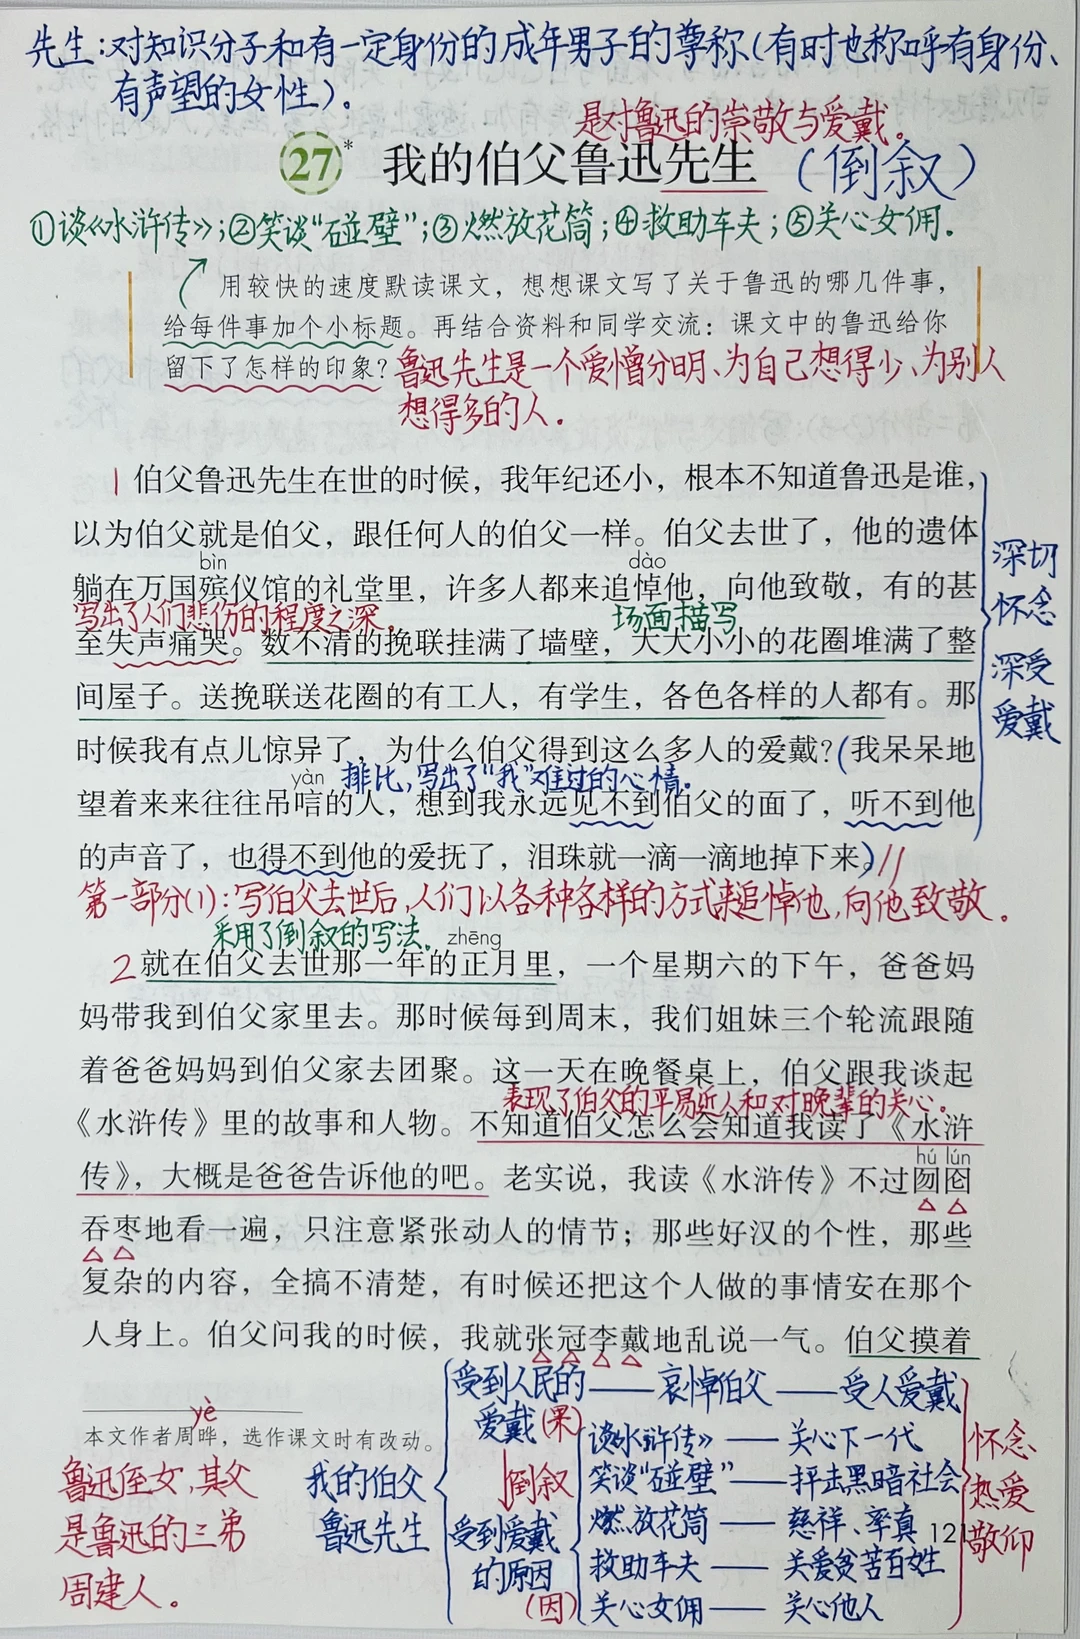 先生:对知识分子和有一定身份的成年男子的尊称(有时也称呼有身份、
有声望的女性)。
是对鲁迅的崇敬与爱戴。
27* 我的伯父鲁迅先生 (倒叙)
①谈《水浒传》;②笑谈“碰壁”;③燃放花筒;④救助车夫;⑤关心女佣.
用较快的速度默读课文，想想课文写了关于鲁迅的哪几件事，
给每件事加个小标题。再结合资料和同学交流：课文中的鲁迅给你
留下了怎样的印象？鲁迅先生是一个爱憎分明、为自己想得少、为别人
想得多的人.
1 伯父鲁迅先生在世的时候，我年纪还小，根本不知道鲁迅是谁，
以为伯父就是伯父，跟任何人的伯父一样。伯父去世了，他的遗体
bìn dào
躺在万国殡仪馆的礼堂里，许多人都来追悼他，向他致敬，有的甚
写出了人们悲伤的程度之深. 场面描写
至失声痛哭。数不清的挽联挂满了墙壁，大大小小的花圈堆满了整
间屋子。送挽联送花圈的有工人，有学生，各色各样的人都有。那
时候我有点儿惊异了，为什么伯父得到这么多人的爱戴？(我呆呆地
yàn 排比,写出了“我”难过的心情.
望着来来往往吊唁的人，想到我永远见不到伯父的面了，听不到他
的声音了，也得不到他的爱抚了，泪珠就一滴一滴地掉下来。)//
深切
怀念
深受
爱戴
第一部分(1):写伯父去世后,人们以各种各样的方式来追悼他,向他致敬.
采用了倒叙的写法. zhēng
2 就在伯父去世那一年的正月里，一个星期六的下午，爸爸妈
妈带我到伯父家里去。那时候每到周末，我们姐妹三个轮流跟随
着爸爸妈妈到伯父家去团聚。这一天在晚餐桌上，伯父跟我谈起
表现了伯父的平易近人和对晚辈的关心.
《水浒传》里的故事和人物。不知道伯父怎么会知道我读了《水浒
hú lún
传》，大概是爸爸告诉他的吧。老实说，我读《水浒传》不过囫囵
吞枣地看一遍，只注意紧张动人的情节；那些好汉的个性，那些
复杂的内容，全搞不清楚，有时候还把这个人做的事情安在那个
人身上。伯父问我的时候，我就张冠李戴地乱说一气。伯父摸着
yè
本文作者周晔，选作课文时有改动。
鲁迅侄女,其父
是鲁迅的三弟
周建人.
我的伯父
鲁迅先生
受到人民的
爱戴(果)
——哀悼伯父——受人爱戴
倒叙
受到爱戴
的原因
(因)
谈《水浒传》——关心下一代
笑谈“碰壁”——抨击黑暗社会
燃放花筒——慈祥、率真
救助车夫——关爱贫苦百姓
关心女佣——关心他人
怀念
热爱
敬仰
121